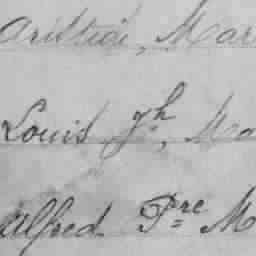 Aristide, Mar
Louis Jh, Ma
Alfred Pre M